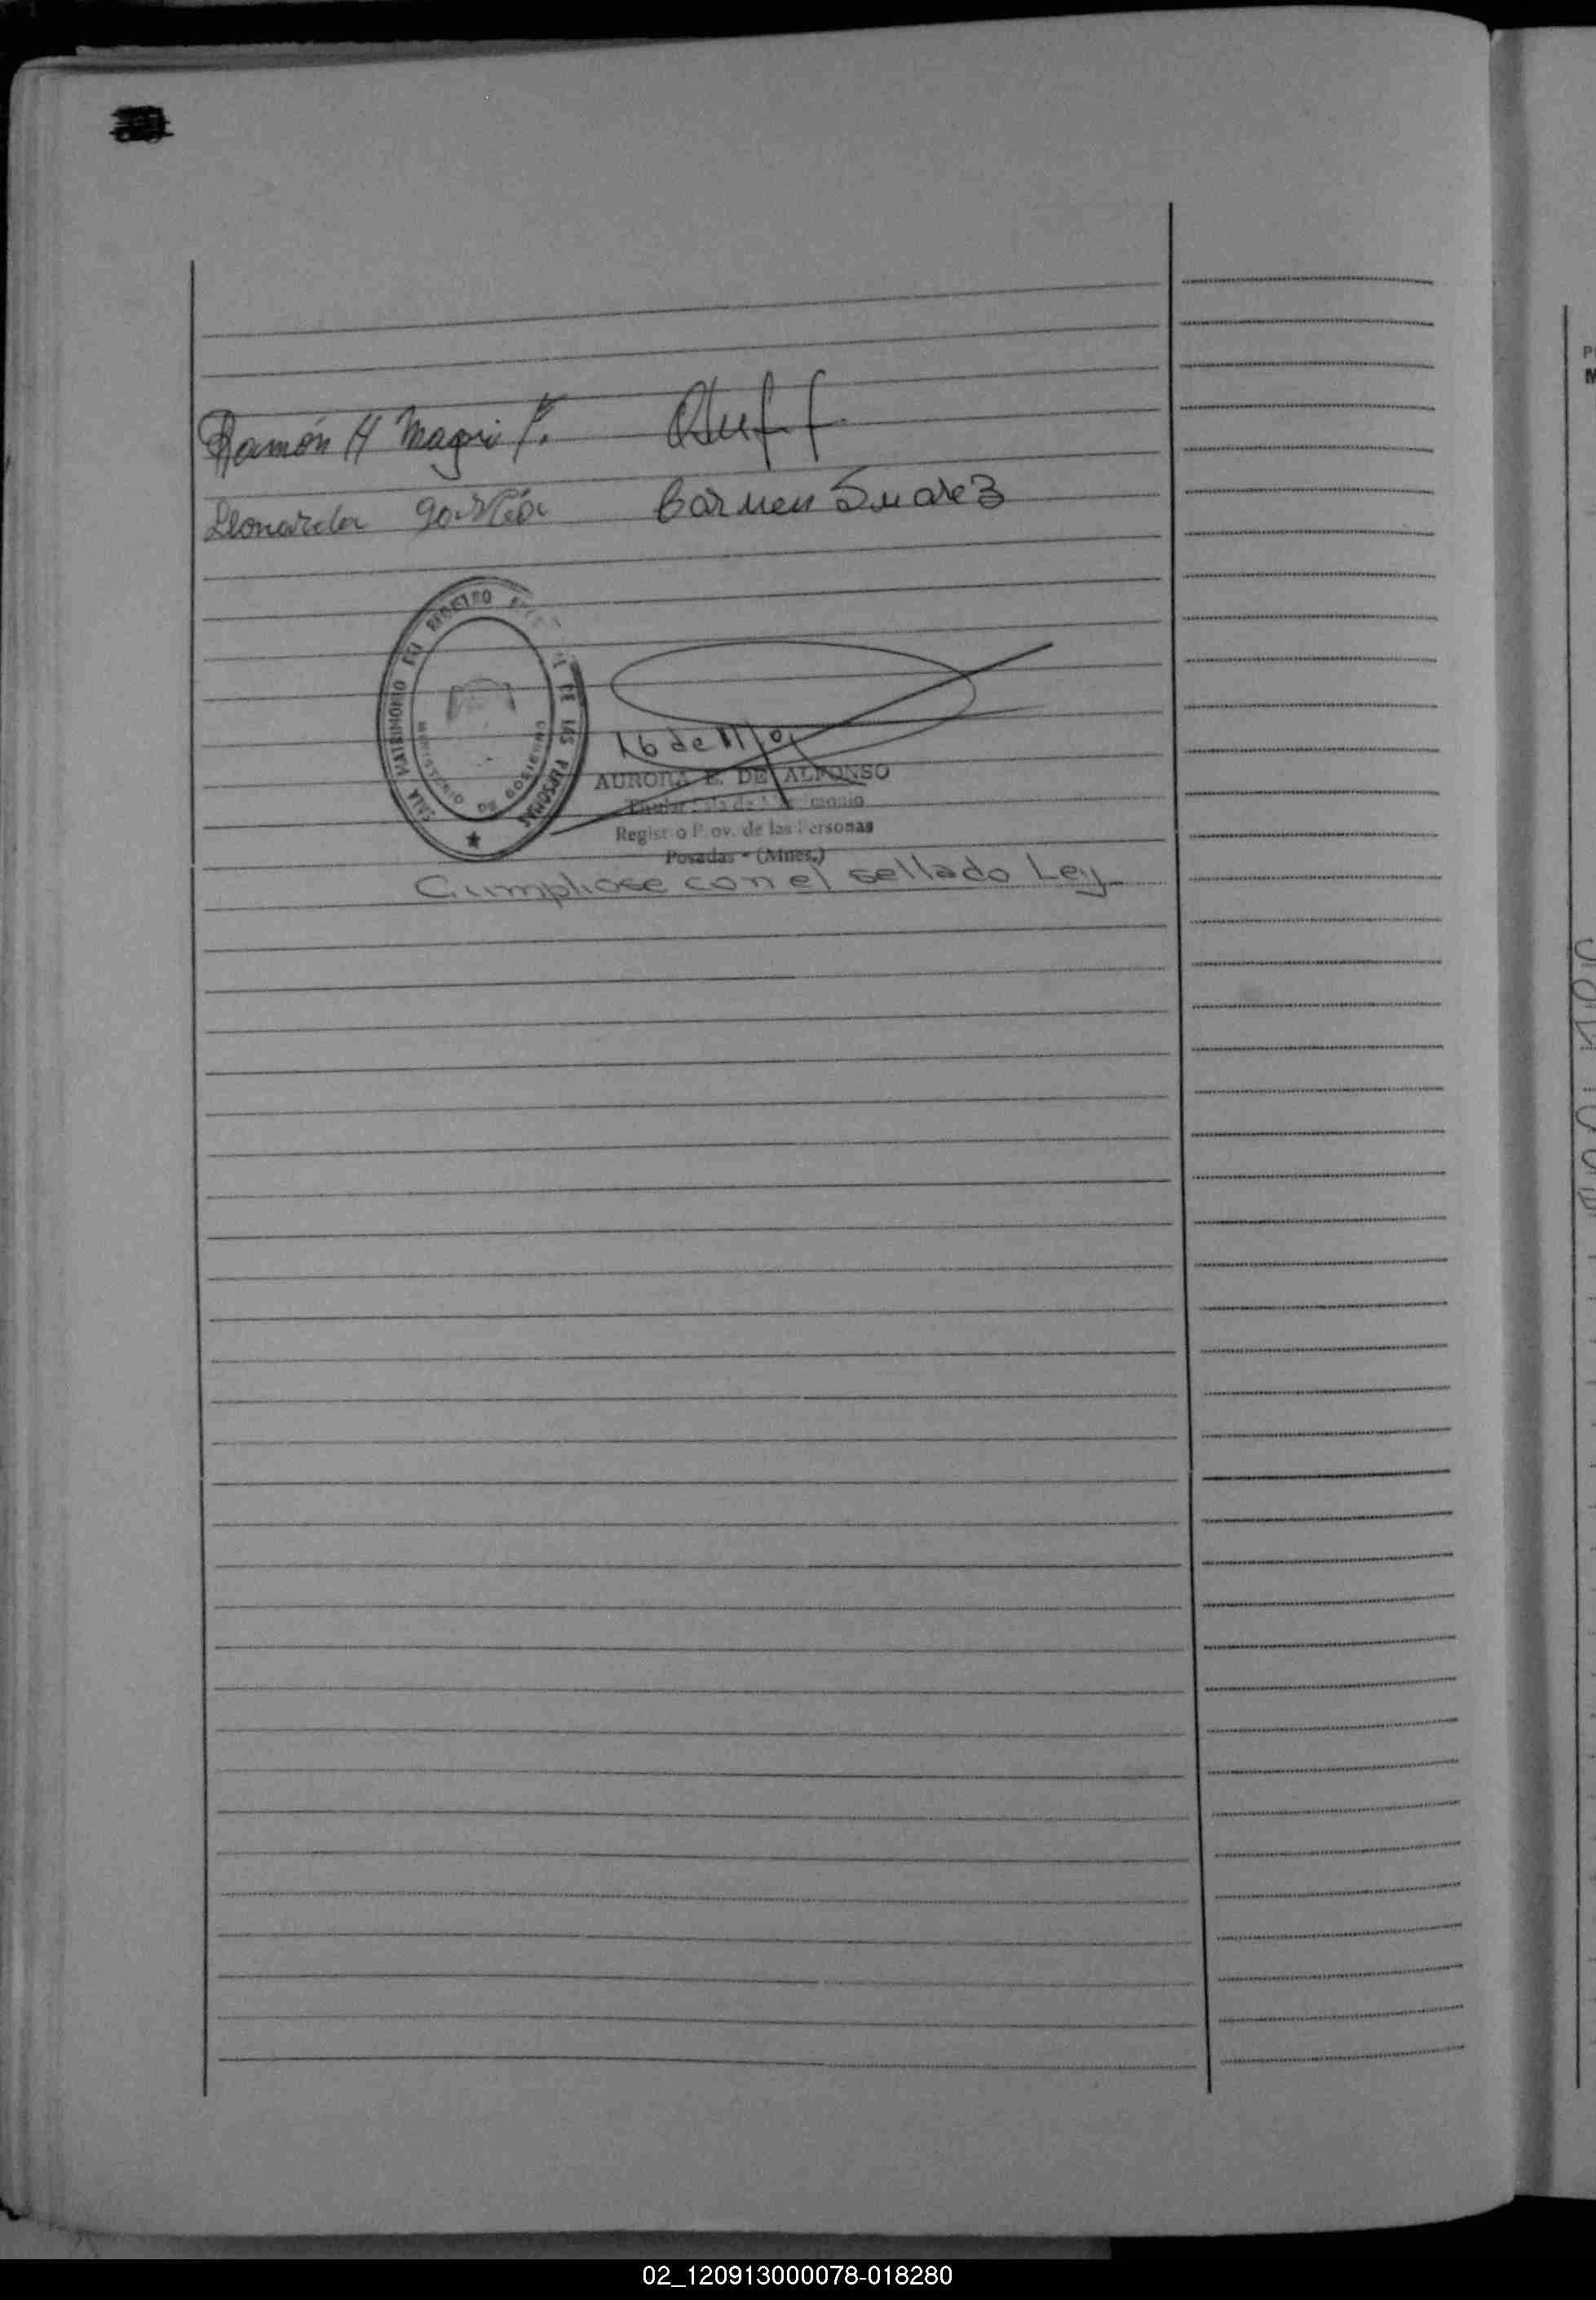 Ramón H Magri P.
Leonarda Carmen Suarez
SALA MATRIMONIO REGISTRO DE LAS PERSONAS
MINISTERIO DE GOBIERNO
AURORA E. DE ALFONSO
Titular Sala de Matrimonio
Registro Prov. de las Personas
Posadas - (Mnes.)
Cumpliose con el sellado Ley
02_120913000078-018280